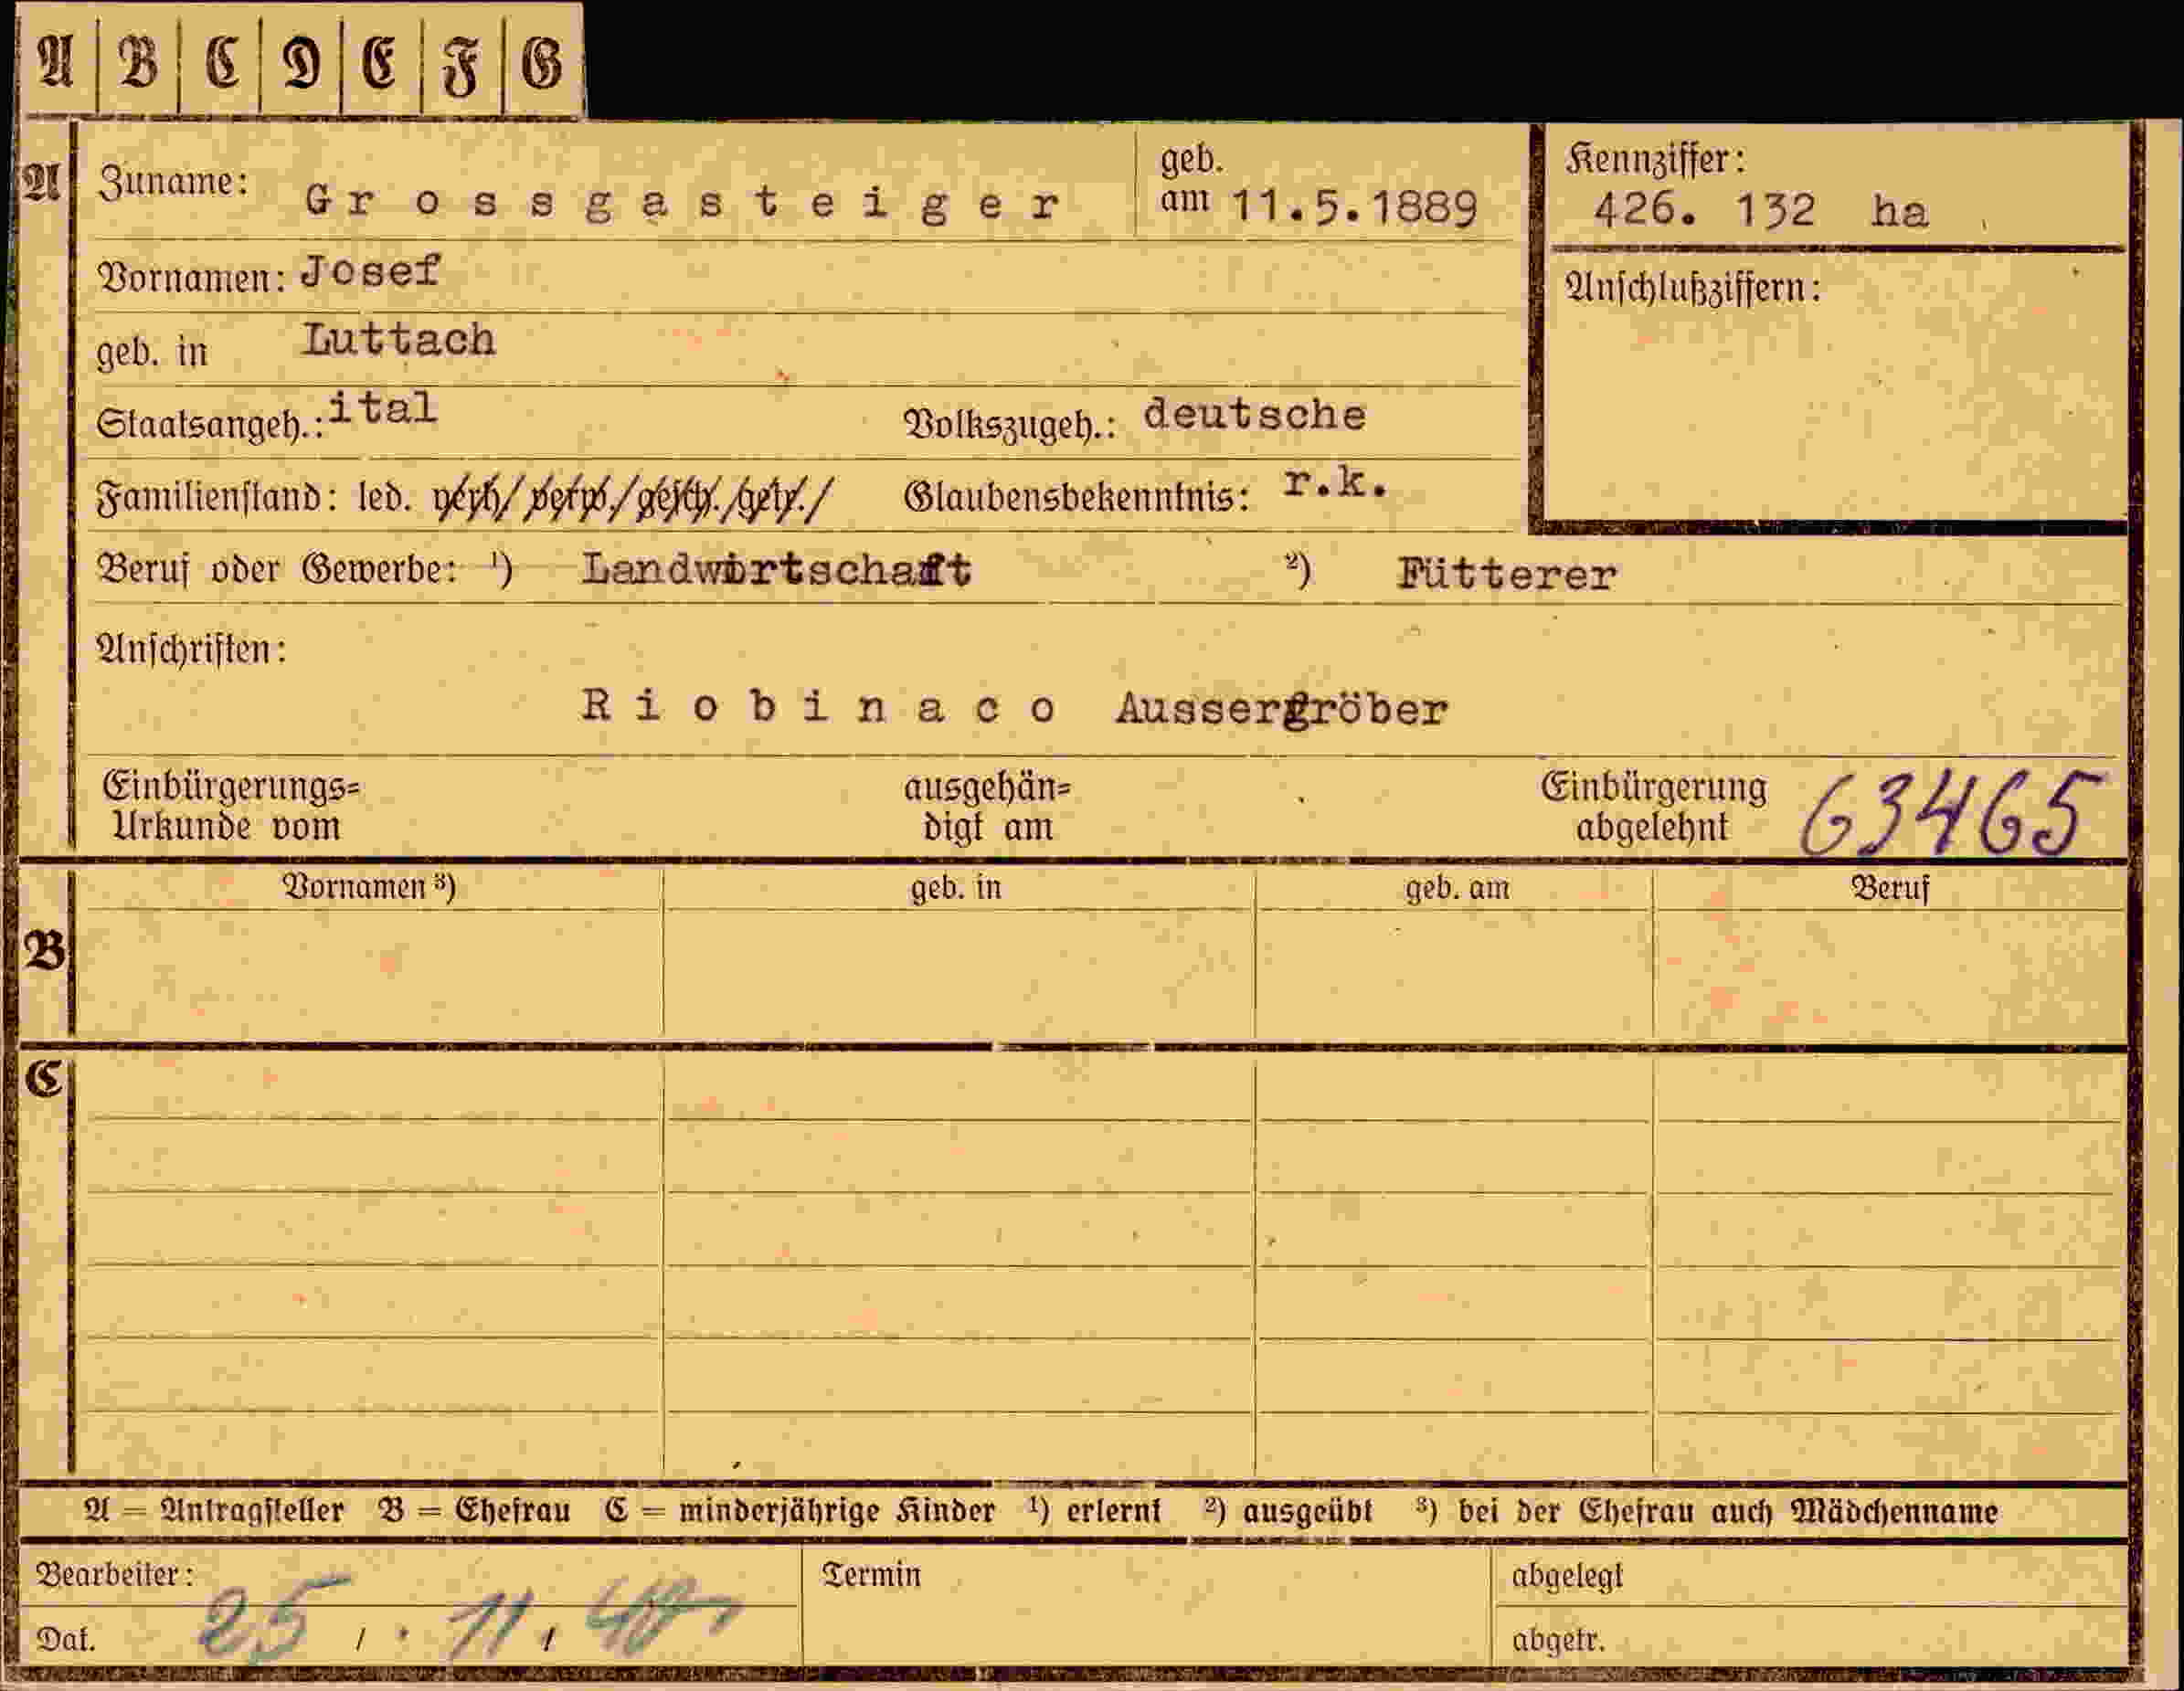 A B C D E F G
A Zuname: Grossgasteiger geb. am 11.5.1889 Kennziffer: 426. 132 ha
Vornamen: Josef Anschlußziffern:
geb. in Luttach
Staatsangeh.: ital Volkszugeh.: deutsche
Familienstand: led. verh/ verw./ gesch./ getr./ Glaubensbekenntnis: r.k.
Beruf oder Gewerbe: ¹) Landwirtschaft ²) Fütterer
Anschriften:
Riobinaco Aussergröber
Einbürgerungs= ausgehän= Einbürgerung 63465
Urkunde vom digt am abgelehnt
Vornamen ³) geb. in geb. am Beruf
B
C
A = Antragsteller B = Ehefrau C = minderjährige Kinder ¹) erlernt ²) ausgeübt ³) bei der Ehefrau auch Mädchenname
Bearbeiter: Termin abgelegt
Dat. 25. 11. 40 abgetr.